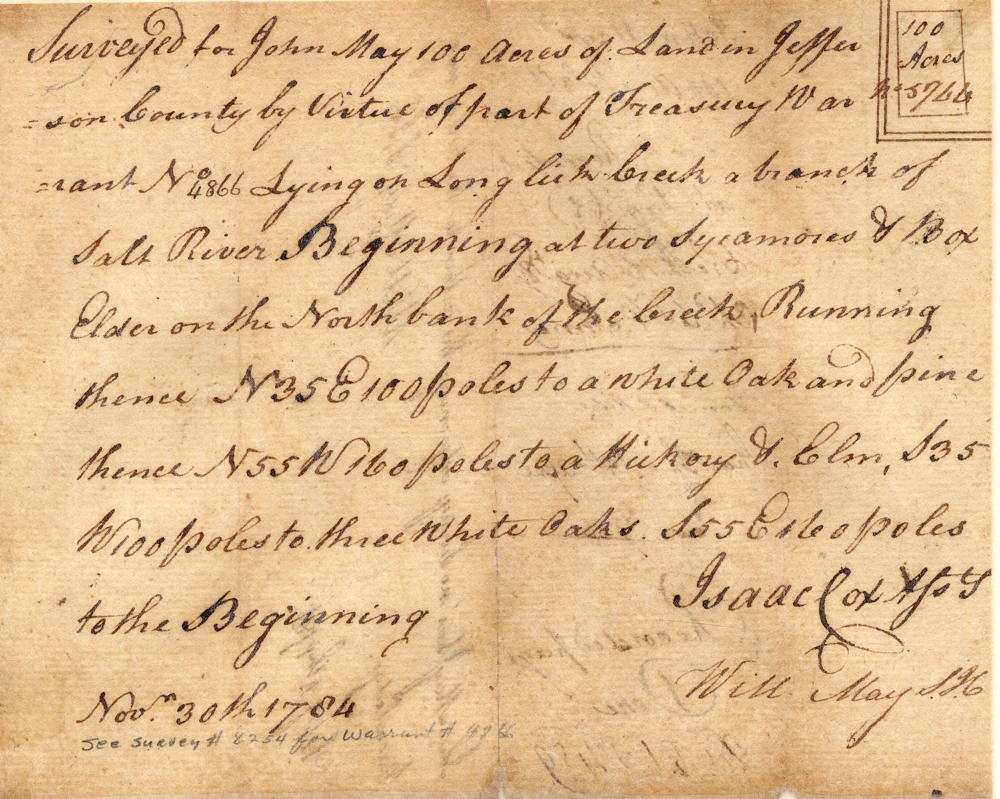 Surveyed for John May 100 Acres of Land in Jeffer
=son County by Virtue of part of Treasury War
=rant No 4866 Lying on Long lick Creek a branch of
Salt River Beginning at two Sycamores & Box
Elder on the North bank of the Creek, Running
thence N35E 100 poles to a white Oak and pine
thence N55W 160 poles to a Hickory & Elm, S35
W100 poles to three White Oaks. S55E 160 poles
to the Beginning
Isaac Cox Asst
Will May S
Novr. 30th 1784
See Survey # 8254 for Warrant # 4866
100
Acres
No 5744